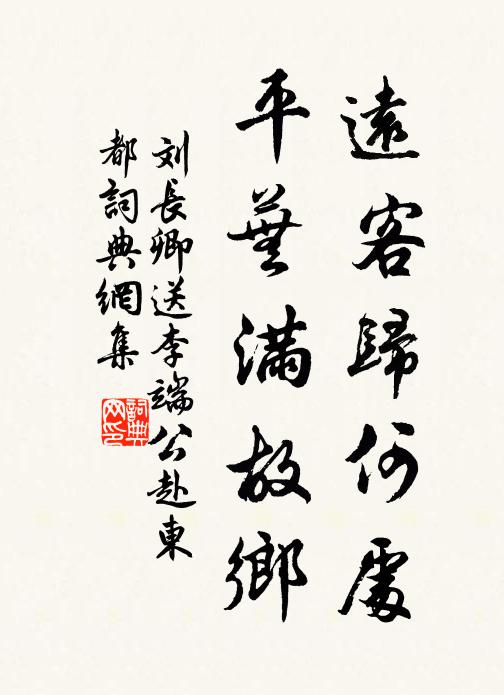 遠客歸何處
平蕪滿故鄉
刘長卿送李端公赴東
都詞典網集
詞典
网印